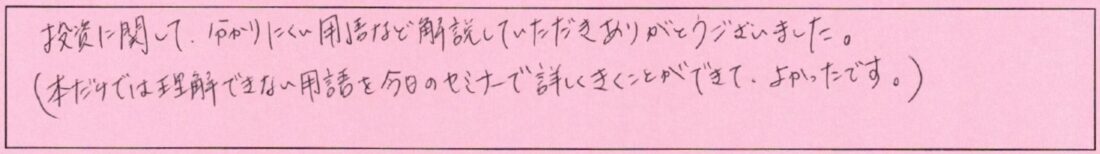 投資に関して、分かりにくい用語など解説していただきありがとうございました。
(本だけでは理解できない用語を今日のセミナーで詳しくきくことができて、よかったです。)